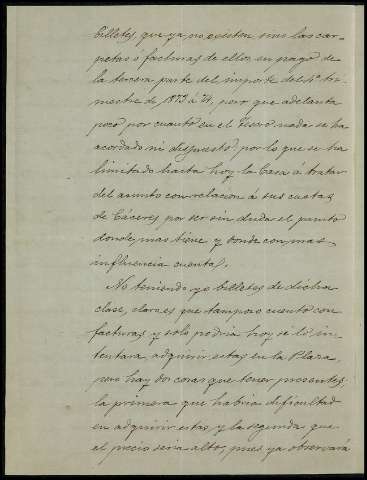 billetes, que ya no existen, sino las car-
petas ó facturas de ellos, en pago de
la tercera parte del importe del 4º tri-
mestre de 1873 á 74, pero que adelanta
poco por cuanto en el Tesoro nada se ha
acordado ni dispuesto, por lo que se ha
limitado hasta hoy la Casa á tratar
del asunto con relacion á sus cuotas
de Cáceres por ser sin duda el punto
donde mas tiene y donde con mas
influencia cuenta.
No teniendo yo billetes de dicha
clase, claro es que tampoco cuento con
facturas y solo podria hoy si lo in-
tentara, adquirir estas en la Plaza,
pero hay dos cosas que tener presentes,
la primera que habria dificultad
en adquirir estas y la segunda que
el precio seria alto, pues ya observará